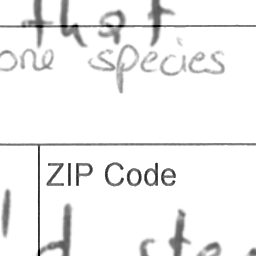 that
one species
ZIP Code